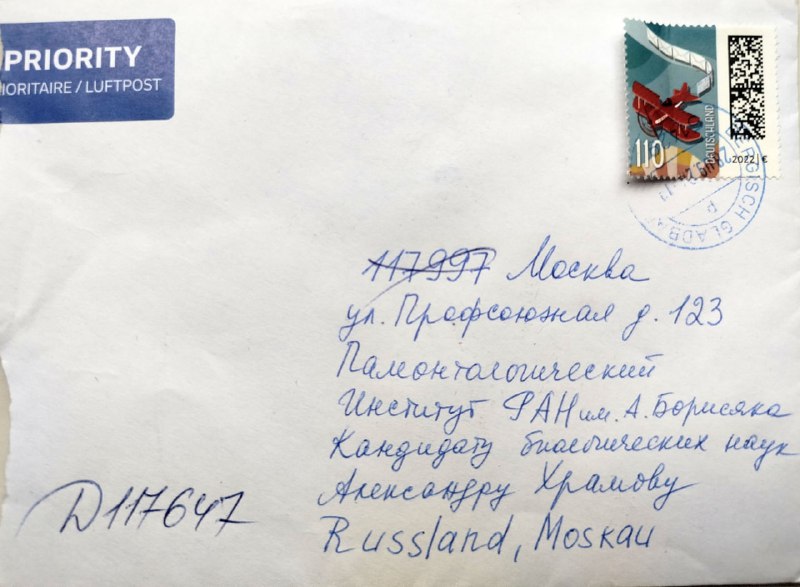 PRIORITY
IORITAIRE / LUFTPOST
110
DEUTSCHLAND
2022 €
BERGISCH GLADBA
p
117997 Москва
ул. Профсоюзная д. 123
Палеонтологический
Институт РАН им. А. Борисяка
Кандидату биологических наук
Александру Храмову
Russland, Moskau
Д117647